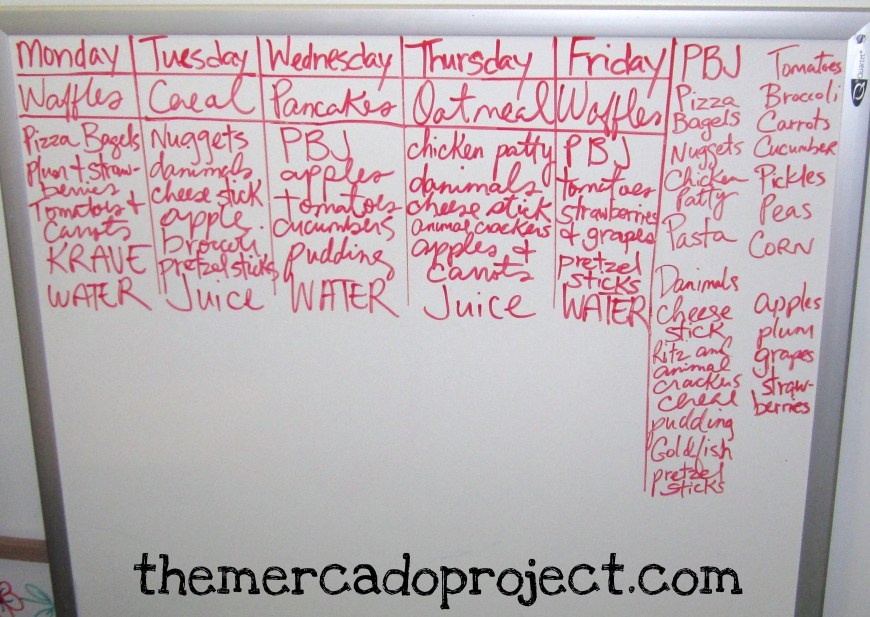 Monday
Waffles
Pizza Bagels
Plum + straw-
berries
Tomatoes +
Carrots
KRAVE
WATER
Tuesday
Cereal
Nuggets
danimals
cheese stick
apple
brocoli
pretzel sticks
Juice
Wednesday
Pancakes
PBJ
apples
tomatoes
cucumbers
pudding
WATER
Thursday
Oatmeal
chicken patty
danimals
cheese stick
animal crackers
apples +
carrots
Juice
Friday
Waffles
PBJ
tomatoes
strawberries
+ grapes
pretzel
sticks
WATER
PBJ
Pizza
Bagels
Nuggets
Chicken
Patty
Pasta
Danimals
cheese
stick
Ritz and
animal
crackers
cereal
pudding
Goldfish
pretzel
sticks
Tomatoes
Broccoli
Carrots
Cucumber
Pickles
Peas
CORN
apples
plum
grapes
straw-
berries
Quartet
themercadoproject.com